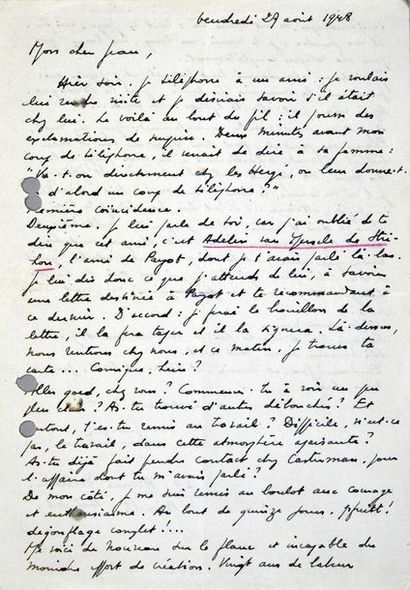 vendredi 27 août 1948
Mon cher Jean,
Hier soir, je téléphone à un ami : je voulais
lui rendre visite et je désirais savoir s'il était
chez lui. Le voilà au bout du fil ; il pousse des
exclamations de surprise. Deux minutes avant mon
coup de téléphone, il venait de dire à sa femme :
"Va-t-on directement chez les Hergé, ou leur donne-t-
d'abord un coup de téléphone ?"
Première coïncidence.
Deuxième. Je lui parle de toi, car j'ai oublié de te
dire que cet ami, c'est Adelin van Ypersele de Stri-
hou, l'ami de Payot, dont je t'avais parlé là-bas.
Je lui dis donc ce que j'attends de lui, à savoir
une lettre destinée à Payot et te recommandant à
ce dernier. D'accord : je ferai le brouillon de la
lettre, il la fera taper et il la signera. Là-dessus,
nous rentrons chez nous, et ce matin, je trouve ta
carte... Comique, hein ?
Alles goed, chez vous ? Commences-tu à voir un peu
plus clair ? As-tu trouvé d'autres débouchés ? Et
surtout, t'es-tu remis au travail ? Difficile, n'est-ce
pas, le travail, dans cette atmosphère apaisante ?
As-tu déjà fait prendre contact chez Casterman, pour
l'affaire dont tu m'avais parlé ?
De mon côté, je me suis remis au boulot avec courage
et enthousiasme. Au bout de quinze jours, pffuitt !
dégonflage complet !...
Me voici de nouveau sur le flanc et incapable du
moindre effort de création. Vingt ans de labeur